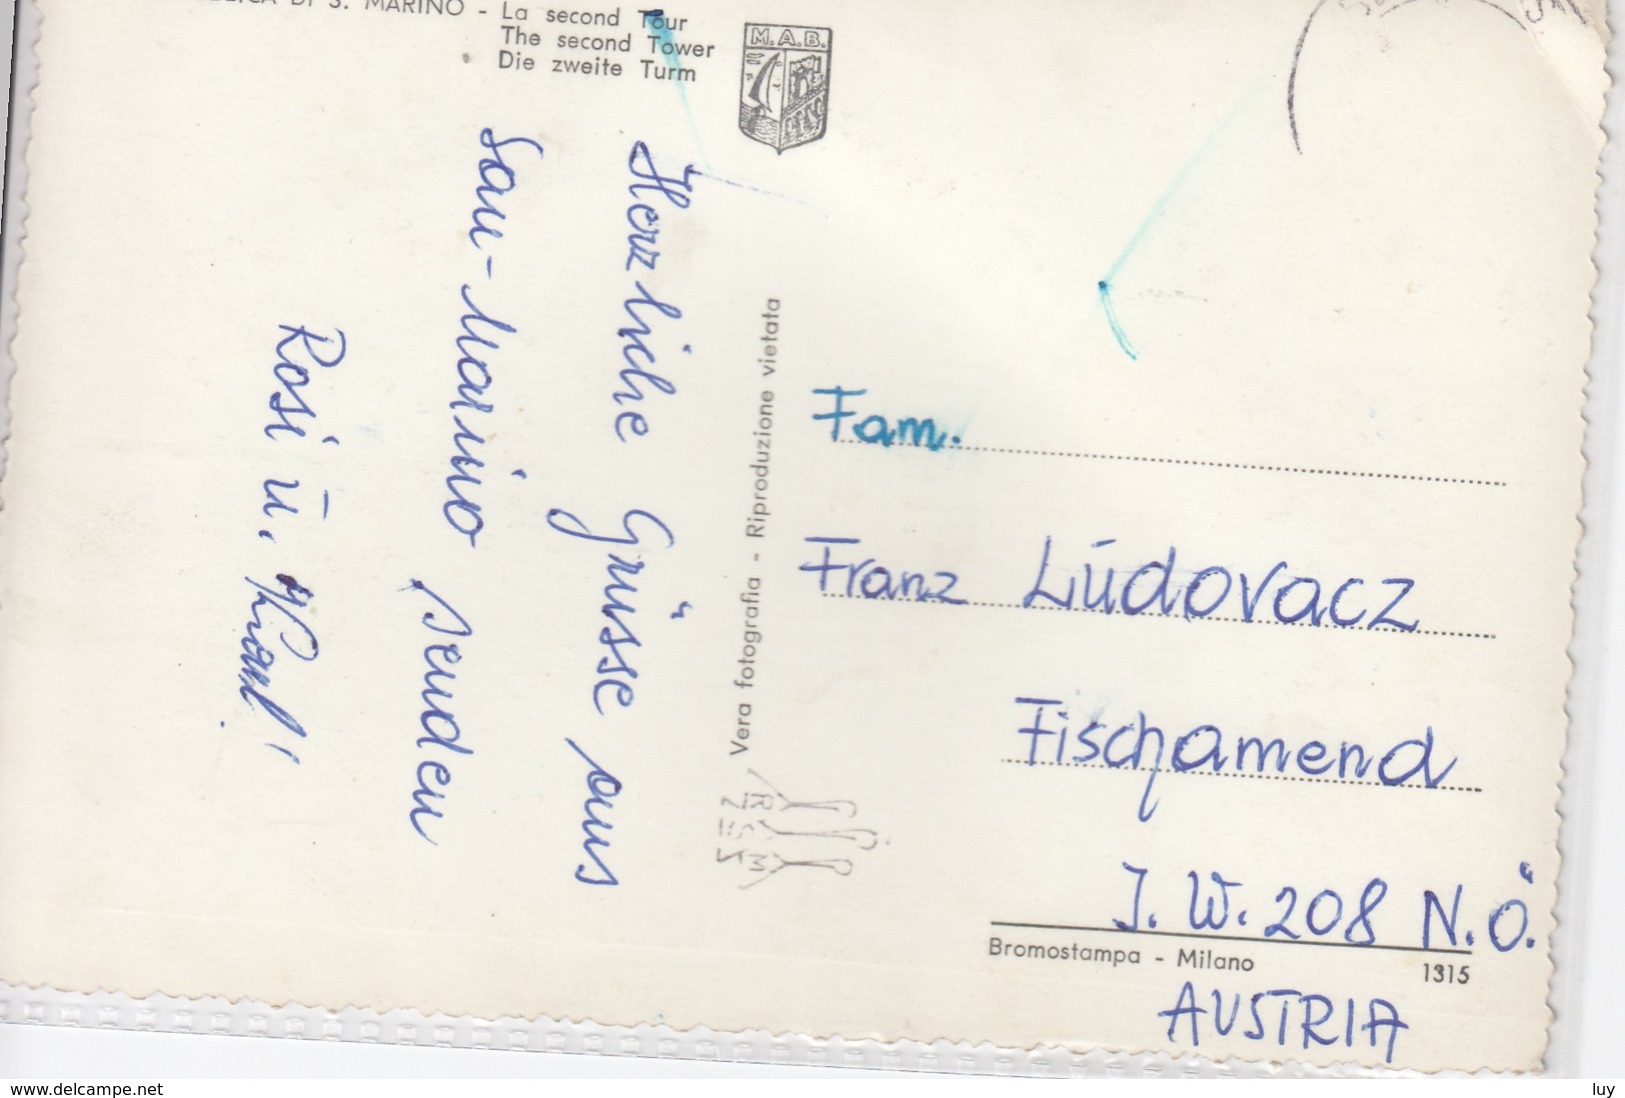 DI S. MARINO - La second Tour
The second Tower
Die zweite Turm
M.A.B.
Herzliche Grüsse aus
San-Marino senden
Rosi u. Karl!
Vera fotografia - Riproduzione vietata
Fam.
Franz Ludovacz
Fischamend
J. W. 208 N.Ö.
AUSTRIA
Bromostampa - Milano
1315
www.delcampe.net
luy